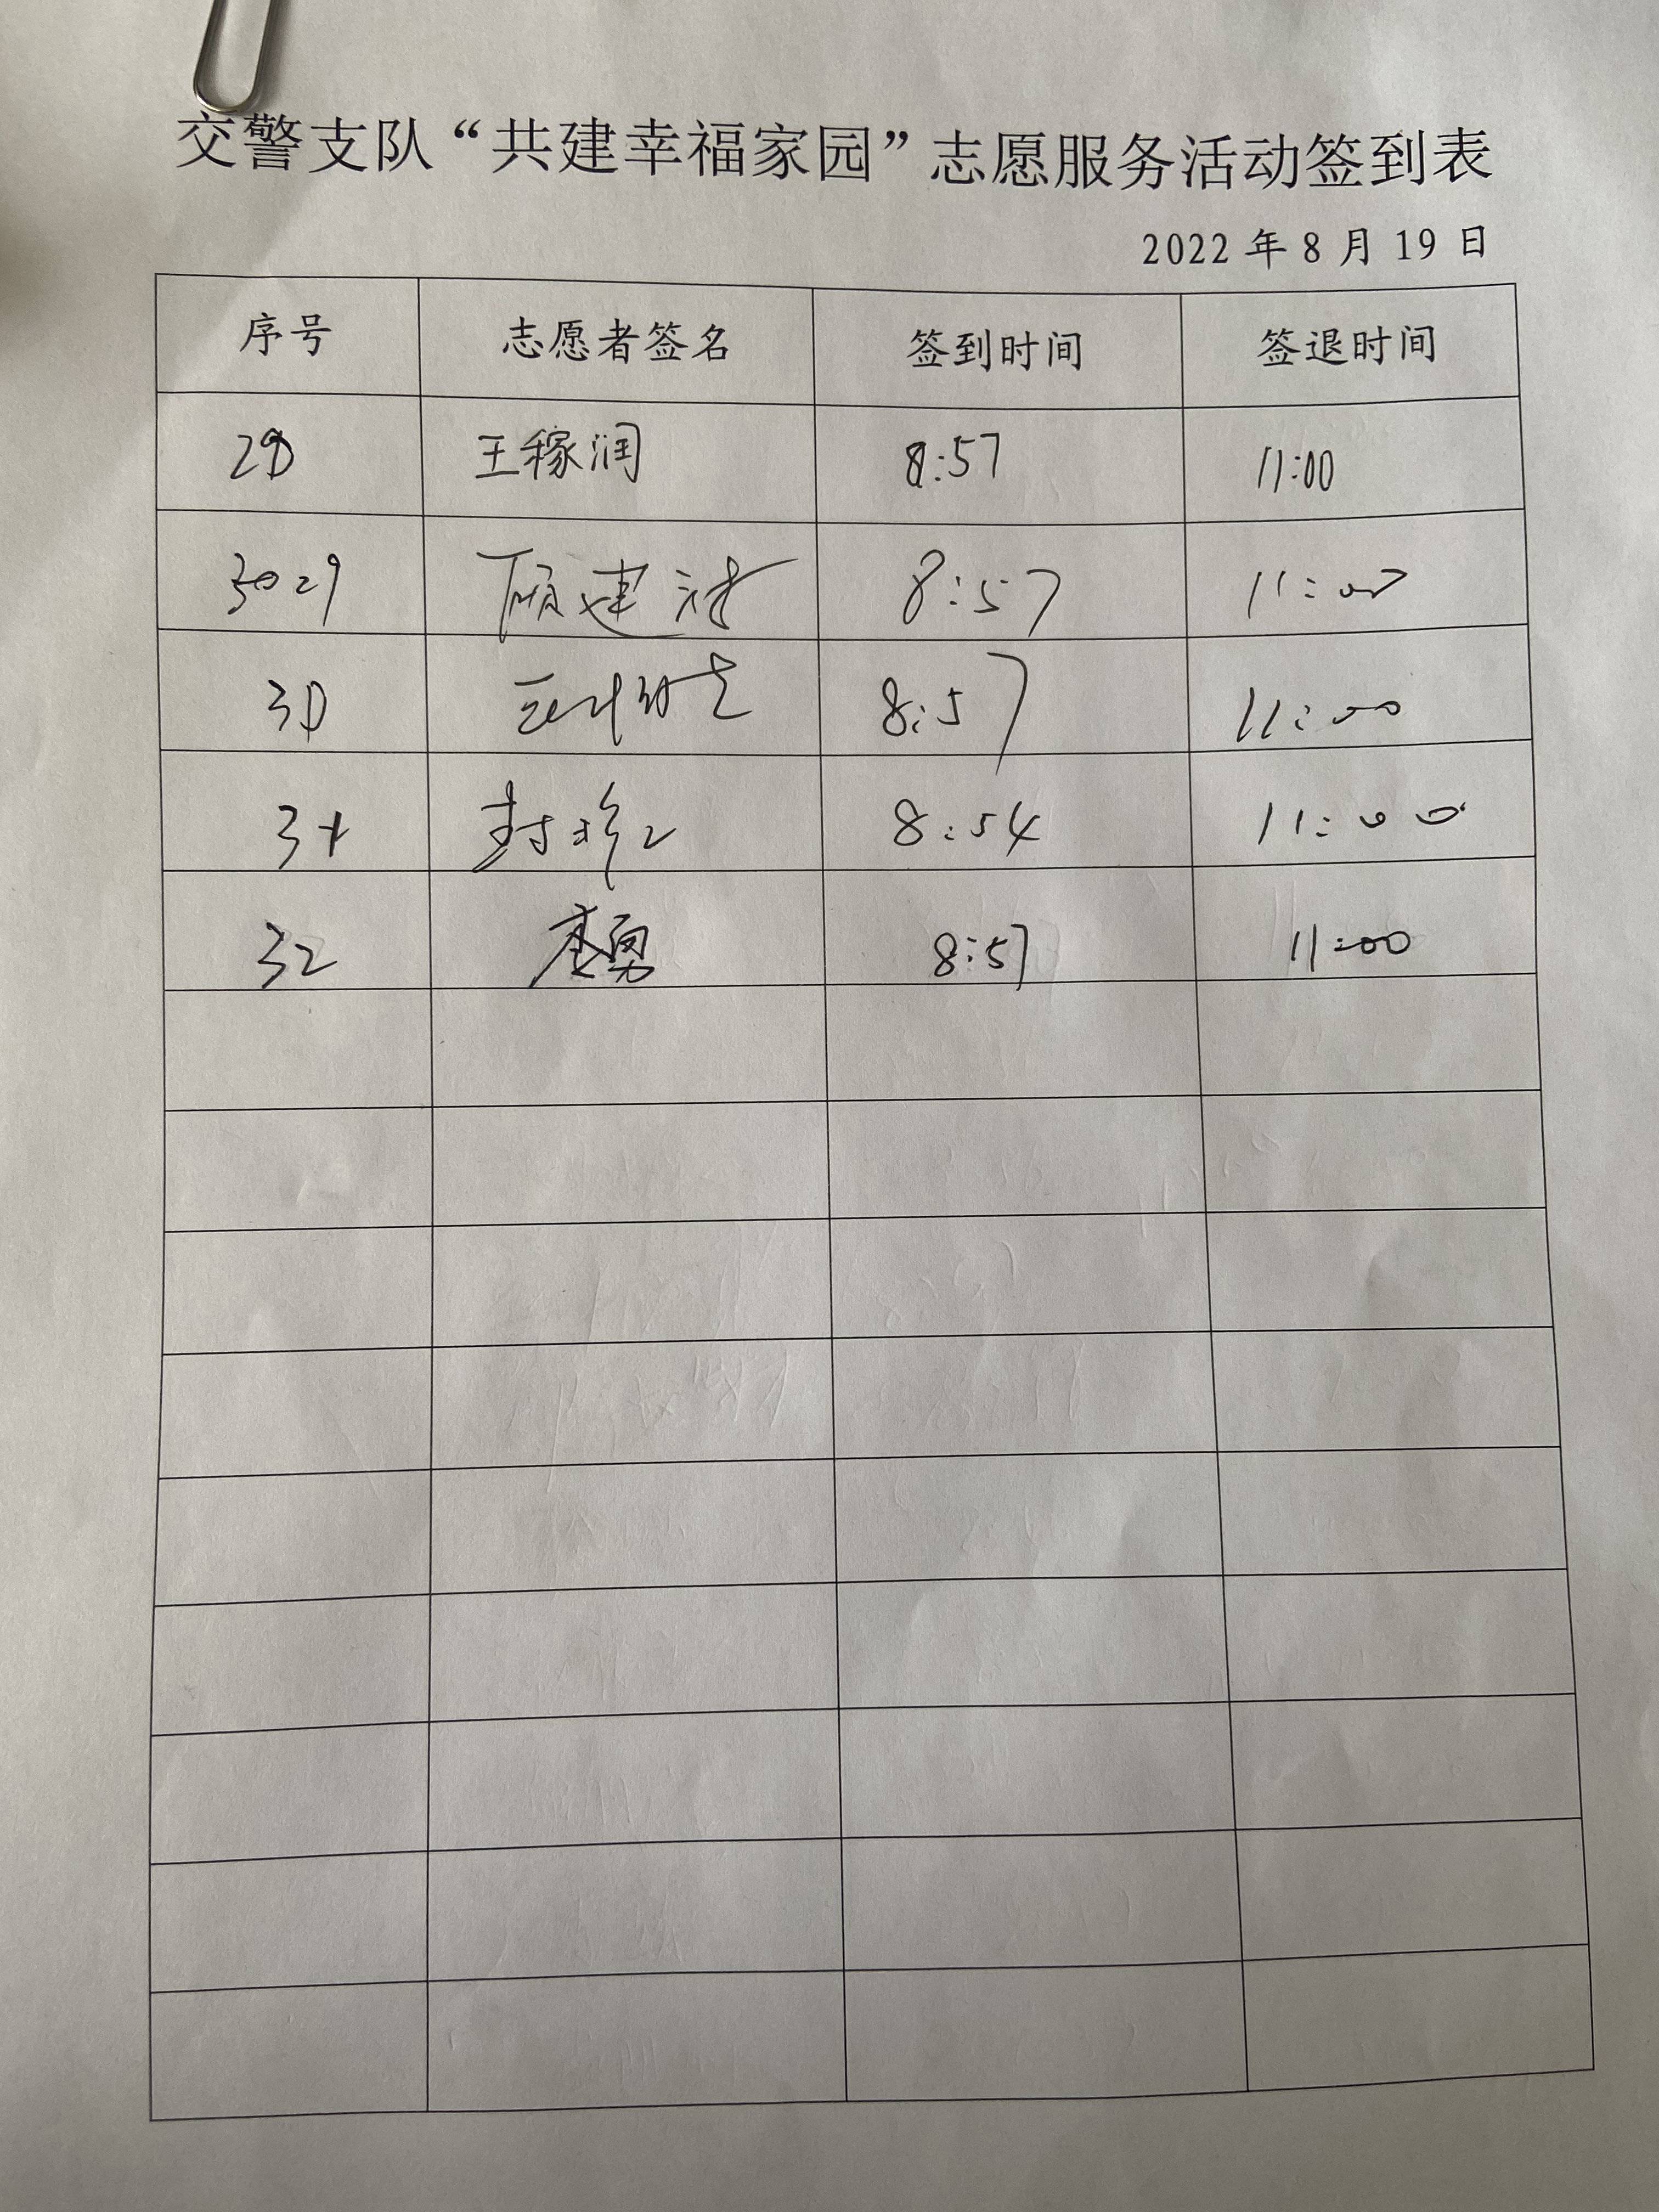 交警支队“共建幸福家园”志愿服务活动签到表
2022年8月19日
序号 志愿者签名 签到时间 签退时间
28 王稼润 8:57 11:00
29 顾建 8:57 11:00
30 8:57 11:00
31 封 8:54 11:00
32 唐勇 8:57 11:00